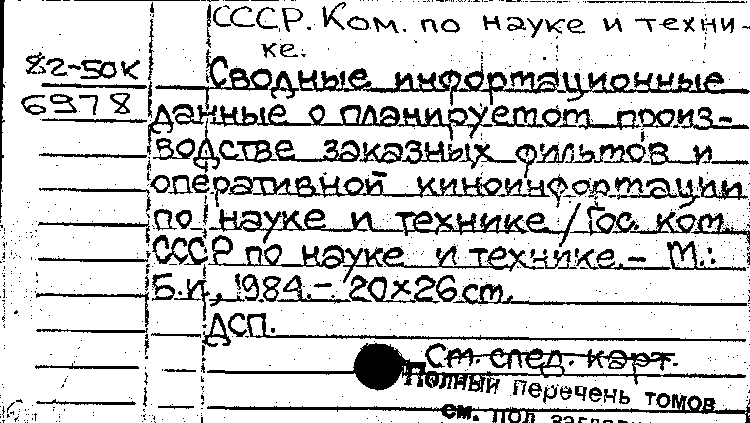 СССР. Ком. по науке и техни-
ке.
82-50к
6978
Сводные информационные
данные о планируемом произ-
водстве заказных фильмов и
оперативной киноинформации
по науке и технике / Гос. ком.
СССР по науке и технике.– М.:
Б.и., 1984.– 20×26 см.
ДСП.
См. след. карт.
Полный перечень томов
см. под